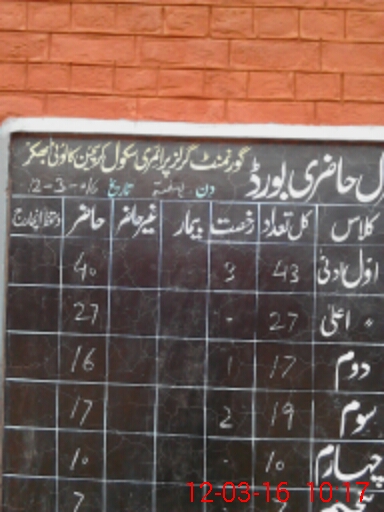 ل حاضری بورڈ گورنمنٹ گرلز پرائمری سکول کرسچن کالونی بھکر
دن ہفتہ تاریخ 12-3-016
کلاس کل تعداد رخصت بیمار غیرحاضر حاضر دستخط انچارج
اوّل ادنیٰ 43 3 40
" اعلیٰ 27 - 27
دوم 17 1 16
سوم 19 2 17
چہارم 10 - 10
پنجم 7 - 7
12-03-16 10:17